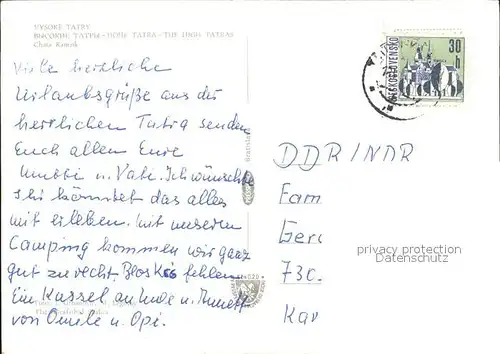 VYSOKÉ TATRY
ВЫСОКИЕ ТАТРЫ - HOHE TATRA - THE HIGH TATRAS
Chata Kamzík
Viele herzliche
Urlaubsgrüße aus der
herrlichen Tatra senden
Euch allen Eure
Mutti u. Vati. Ich wünschte
Ihr könntet das alles
mit erleben. Mit unseren
Camping kommen wir ganz
gut zurecht. Blos fehlen
Ein Kussel an Uwe u.
von Omile u. Opi.
ČESKOSLOVENSKO
30
h
DDR/NDR
Fam
Gerc
730
Kar
privacy protection
Datenschutz
Bratislava